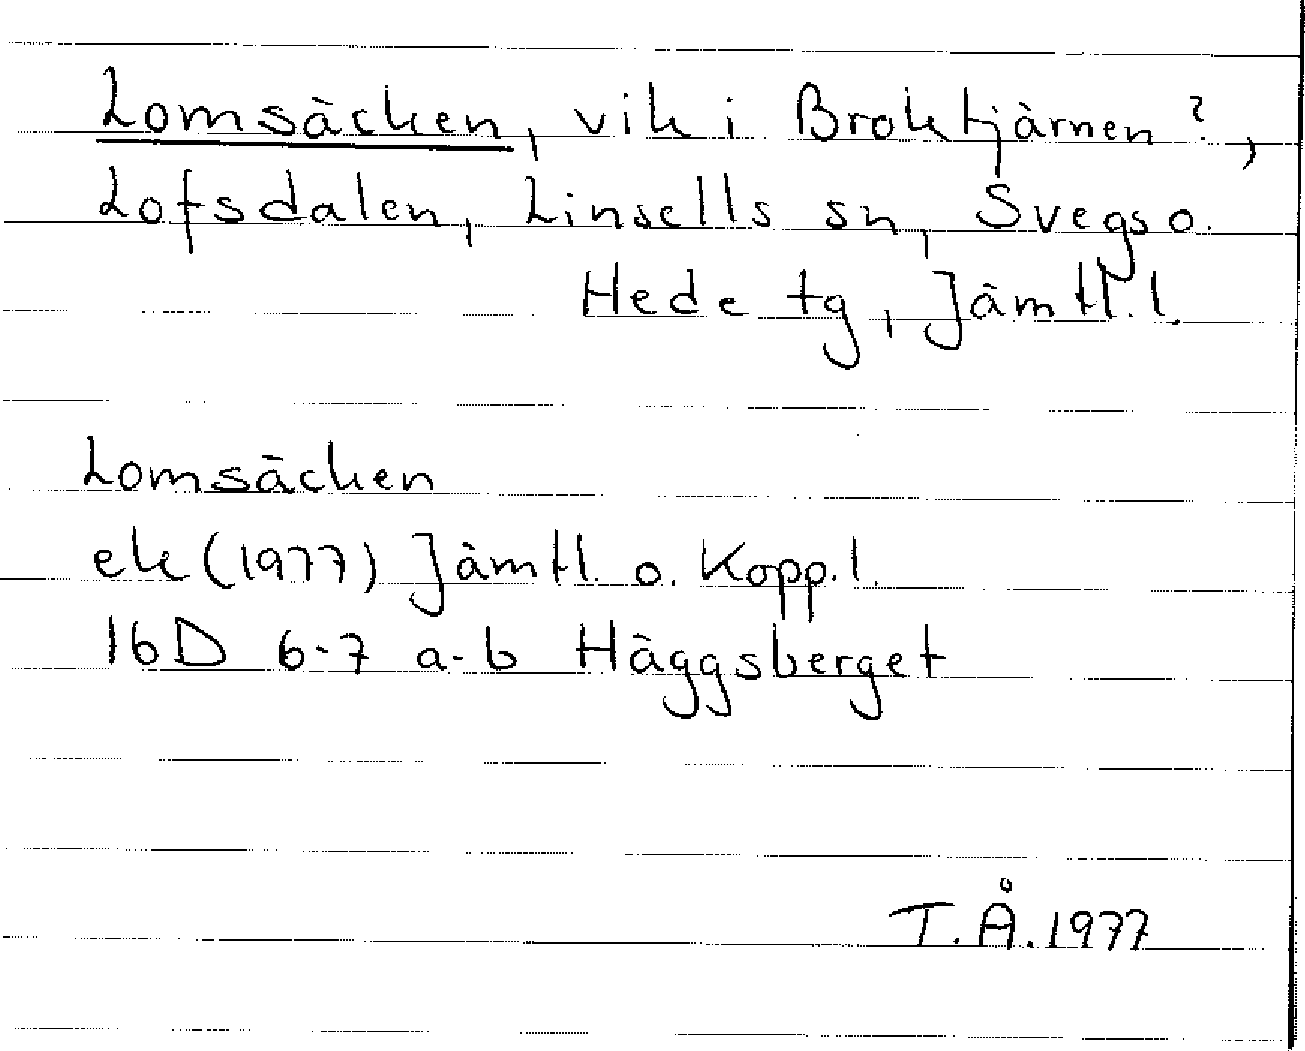 Lomsäcken, vik i Broktjärnen?,
Lofsdalen, Linsells sn, Svegs o.
Hede tg, Jämtl. l.
Lomsäcken
ek (1977) Jämtl. o. Kopp. l.
16D 6-7 a-b Häggsberget
T. Å. 1977